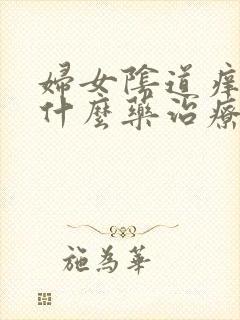 婦女陰道痒
什麼藥治療
施為華